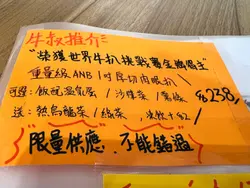 牛叔推介:
"榮獲世界牛扒挑戰賽金牌得主"
重量級 ANB 1吋厚切肉眼扒
可選: 飯配溫泉蛋 / 沙律菜 / 薯條 $238/
送: 熱烏龍茶 / 綠茶 凍飲+$2/
"限量供應, 不能錯過"